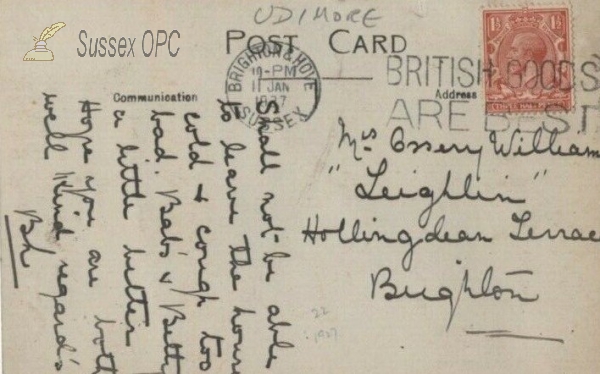 UDIMORE
Sussex OPC
POST CARD
BRIGHTON & HOVE
12-PM
11 JAN
1927
SUSSEX
BRITISH GOODS
ARE BEST
Communication
Address
Shall not be able
to leave the house
cold & cough too
bad. Bab's & Betty
a little better
Hope you are both
well Kind regards
Mrs Ossery William
"Leighlin"
Hollingdean Terrac
Brighton
22
1927